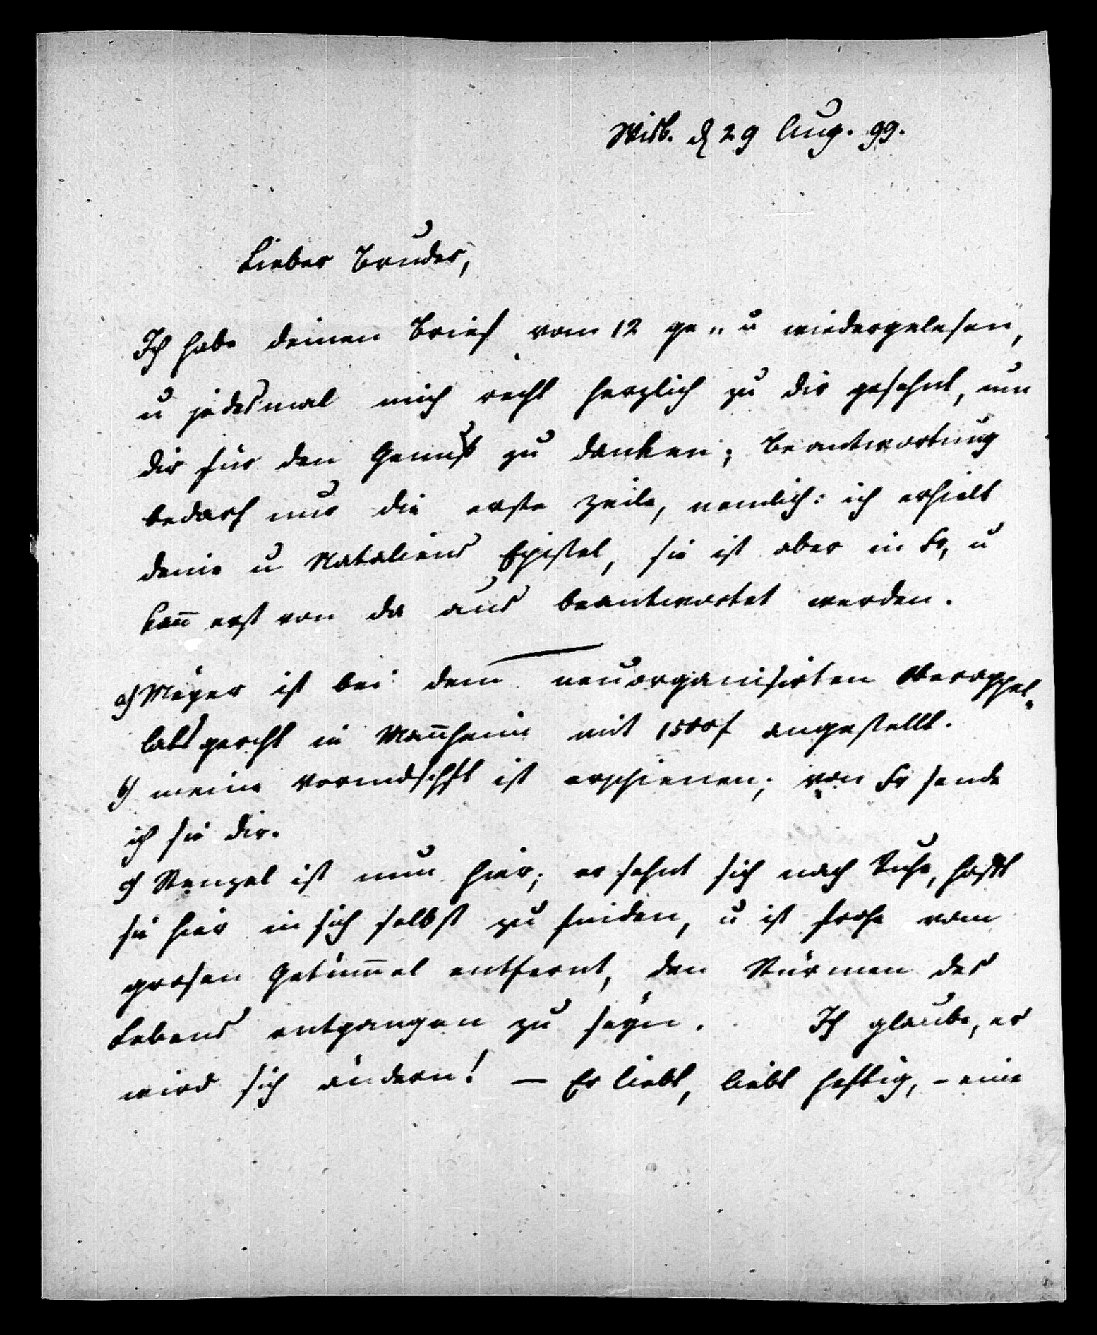 Wisb. d 29 Aug. 99.
Lieber Bruder,
Ich habe deinen Brief vom 12 ge- u wiedergelesen,
u jedesmal mich recht herzlich zu dir gesehnt, um
dir für den Genuß zu danken; Beantwortung
bedarf nur die erste Zeile, nemlich: ich erhielt
deine u Nataliens Epistel, sie ist aber in Fr, u
kann erst von da aus beantwortet werden.
a) Meyer ist bei dem neuorganisirten Oberappel-
lats gericht in Mannheim mit 1500f angestellt.
b) meine Vormdschft ist erschienen; von Fr sende
ich sie dir.
c) Wenzel ist nun hier; er sehnt sich nach Ruhe, hofft
sie hier in sich selbst zu finden, u ist frohe vom
grosen Getümmel entfernt, den Stürmen des
Lebens entgangen zu seyn. Ich glaube, er
wird sich ändern! — Er liebt, liebt heftig, – eine